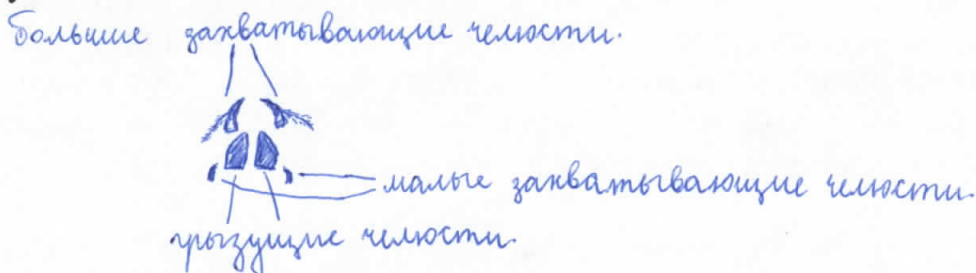 большие захватывающие челюсти.
малые захватывающие челюсти.
грызущие челюсти.